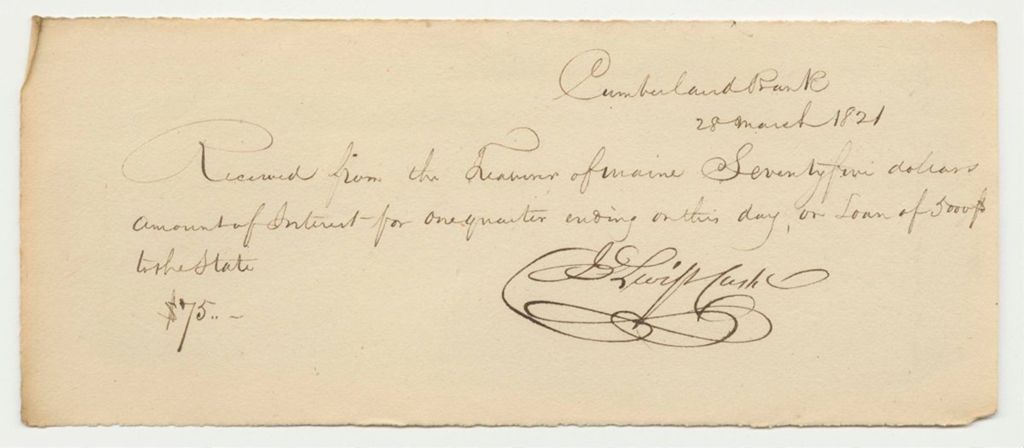 Cumberland Bank
28 March 1821
Received from the Treasurer of Maine Seventyfive dollars
amount of Interest for one quarter ending on this day, on Loan of 5000$
to the State
$75..–
Swift Cash